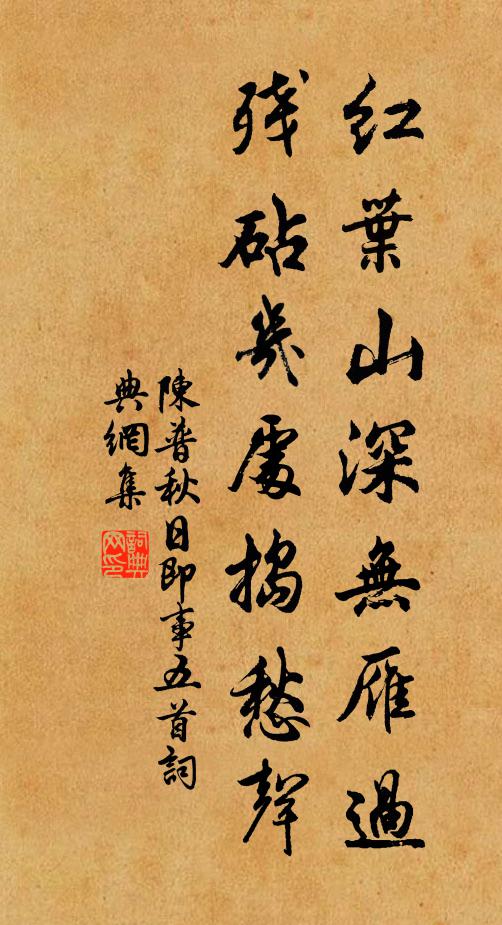 红葉山深無雁過
残砧幾處搗愁聲
陳普秋日即事五首詞
典網集
詞典网印